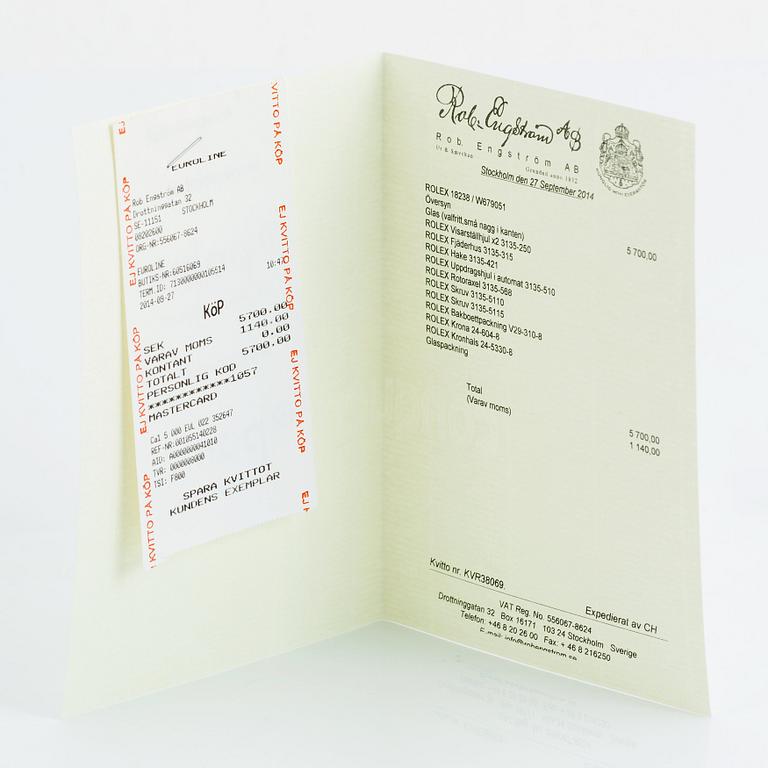 EUROLINE
Rob Engström AB
Drottninggatan 32
SE-11151 STOCKHOLM
08202600
ORG-NR:556067-8624
EUROLINE
BUTIKS-NR:60516069
TERM.ID: 10:47
2014-09-27
KÖP
SEK 5700.00
VARAV MOMS 1140.00
KONTANT 0.00
TOTALT 5700.00
PERSONLIG KOD
************1057
MASTERCARD
Cal 5 000 EUL 022 352647
REF-NR:001055140228
AID: A0000000041010
TVR: 0000008000
TSI: F800
SPARA KVITTOT
KUNDENS EXEMPLAR
EJ KVITTO PÅ KÖP
EJ KVITTO PÅ KÖP
EJ KVITTO PÅ KÖP
KVITTO PÅ KÖP
EJ KVITTO PÅ KÖP
EJ KVITTO PÅ KÖP
Rob. Engström AB
Rob. Engström AB
Ur & Smycken Grundad anno 1872
Stockholm den 27 September 2014
ROLEX 18238 / W679051
Översyn 5 700,00
Glas (valfritt,små nagg i kanten)
ROLEX Visarställhjul x2 3135-250
ROLEX Fjäderhus 3135-315
ROLEX Hake 3135-421
ROLEX Uppdragshjul i automat 3135-510
ROLEX Rotoraxel 3135-568
ROLEX Skruv 3135-5110
ROLEX Skruv 3135-5115
ROLEX Bakboettpackning V29-310-8
ROLEX Krona 24-604-8
ROLEX Kronhals 24-5330-8
Glaspackning
Total 5 700,00
(Varav moms) 1 140,00
Kvitto nr. KVR38069. Expedierat av CH
VAT Reg. No. 556067-8624
Drottninggatan 32 Box 16171 103 24 Stockholm Sverige
Telefon: +46 8 20 26 00 Fax: + 46 8 216250
E-mail: info@robengstrom.se